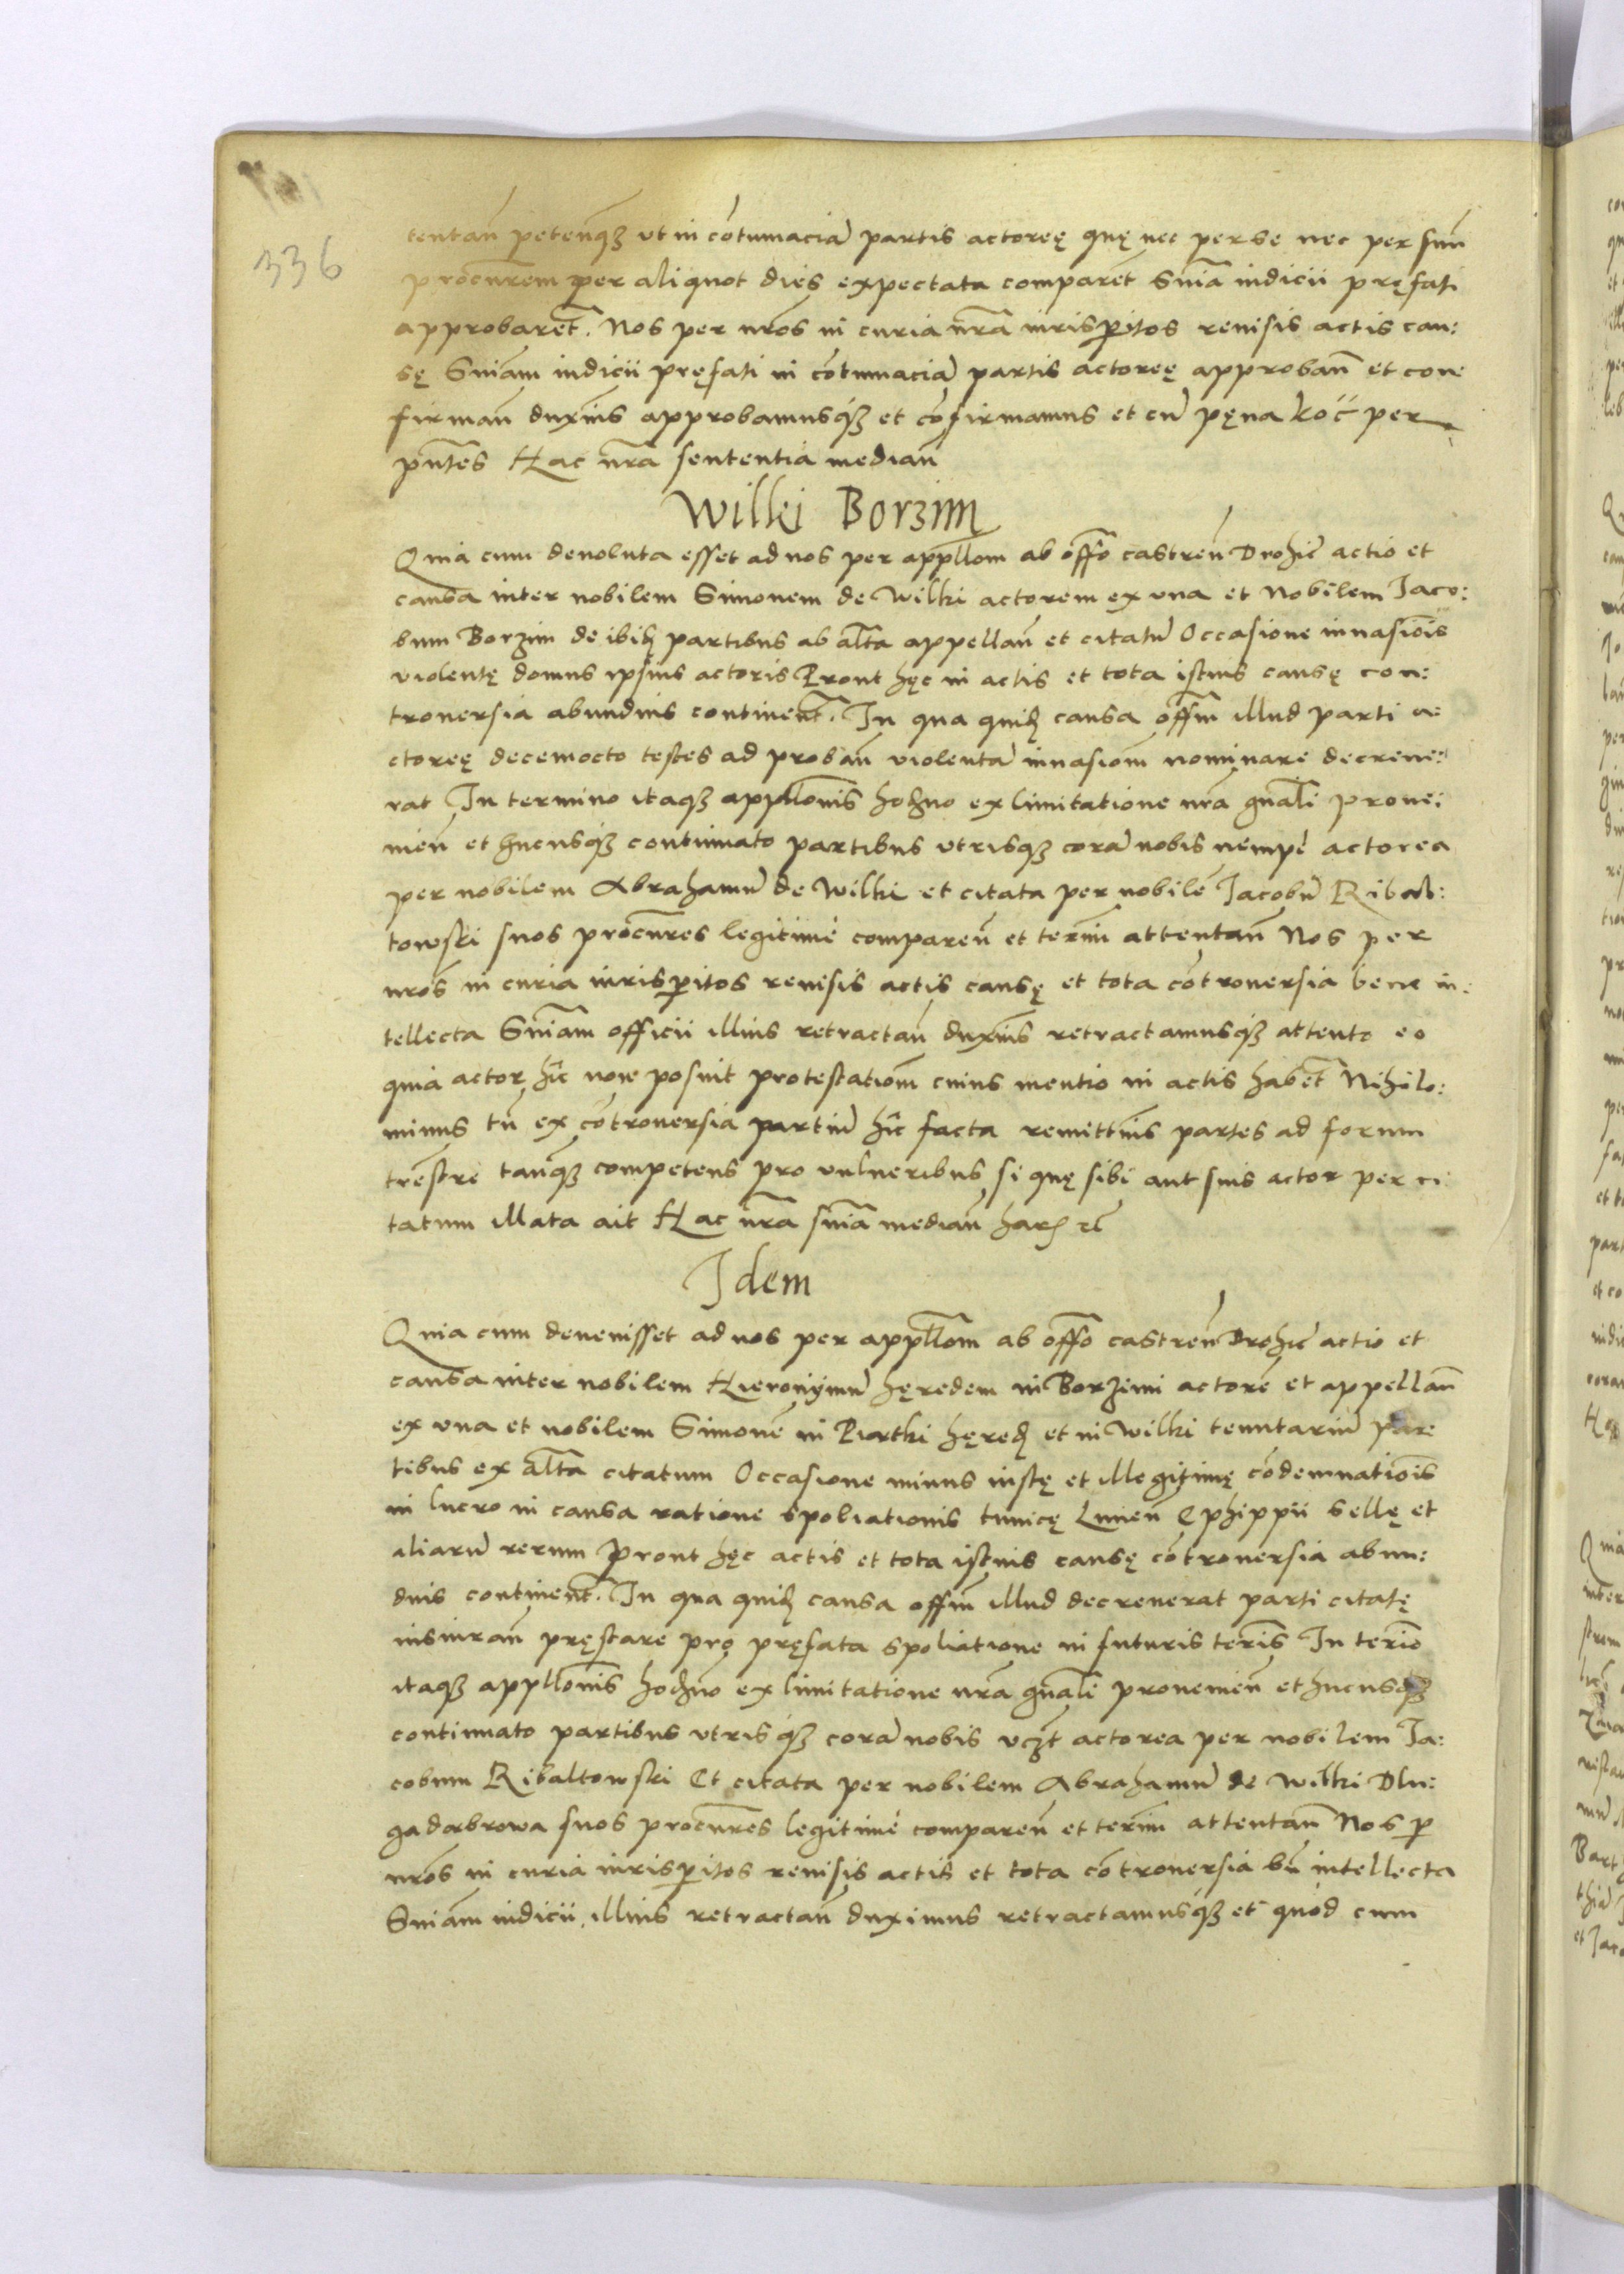 336
tentañ petenq̃ʒ vt in cõtumacia͂ partis actoreę quę nec per se nec per suũ
procũrem per aliquot dies expectata comparet͂ Sniã iudicii pręfati
approbaret͂. Nos per nr̃os in curia nr̃a iurisꝑitos reuisis actis cau:
sę Sniãm iudicii pręfati in cõtumacia͂ partis actoreę approbañ et con
firmañ duxim͂s approbamusq́ʒ et cõfirmamus et cu͂ pęna koc̃ per
pñtes Hac nr̃a sententia mediañ
Wilki Borzim
Quia cum deuoluta esset ad nos per appll̃om ab offõ castreñ Drohic̃ actio et
causa inter nobilem Simonem de Wilki actorem ex vna et Nobilem Jaco:
bum Borzim de ibiḋ partibus ab alt̃a appellañ et citatu͂ Occasione inuasiõis
violentę domus ipsius actoris Prout hęc in actis et tota istius causę con:
trouersia abundius continent͂. In qua quiḋ causa offm̃ illud parti a:
ctoreę decemocto testes ad probañ violenta͂ inuasiom̃ nominare decreue:
rat In termino itaqʒ appllõnis hodẽno ex limitatione nr̃a gñali proue:
nieñ et hucusq́ʒ continuato partibus vtrisqʒ cora͂ nobis nempè actorea
per nobilem Abrahamu͂ de Wilki et citata per nobile͂ Jacobu͂ Ribal:
towski suos procũres legitimè compareñ et term̃i attentañ Nos per
nr̃os in curia iurisꝑitos reuisis actis causę et tota cõtrouersia bene in:
tellecta Sniãm officii illius retractañ duxim͂s retractamusq́ʒ attento eo
quia actor hic̃ non posuit protestatiom̃ cuius mentio in actis habet͂ Nihilo:
minus tñ ex cõtrouersia partiu͂ hic̃ facta remittim͂s partes ad forum
trẽstre tanq̃ʒ competens pro vulneribus si quę sibi aut suis actor per ci:
tatum illata ait Hac nr̃a sniã mediañ harꝫ rẽ
Idem
Quia cum deuenisset ad nos per appll̃om ab offõ castreñ Drohic̃ actio et
causa inter nobilem Hieronijmu͂ hęredem in Borzimi actore͂ et appellañ
ex vna et nobilem Simone͂ in Piortki hęreḋ et in Wilki tenutariu͂ par
tibus ex alt̃a citatum Occasione minus iustę et illegitimę cõdemnatiõis
in lucro in causa ratione spoliationis tunicę Lunieñ Ephippii sellę et
aliaru͂ rerum Prout hęc actis et tota istius causę cõtrouersia abun:
dius continent͂. In qua quiḋ causa offm̃ illud decreuerat parti citatę
iusiurañ pręstare pro pręfata spoliatione in futuris term̃is In term̃io
itaqʒ appllõnis hodẽno ex limitatione nr̃a gñali prouenieñ et hucusqʒ
continuato partibus vtrisq́ʒ cora͂ nobis vcʒt actorea per nobilem Ja:
cobum Ribaltowski Et citata per nobilem Abrahamu͂ de Wilki Dlu:
gadabrowa suos procũres legitimè compareñ et term̃i attentañ Nos ꝑ
nr̃os in curia iurisꝑitos reuisis actis et tota cõtrouersia bñ intellecta
Sniãm iudicii illius retractañ duximus retractamusq́ʒ et quòd cum